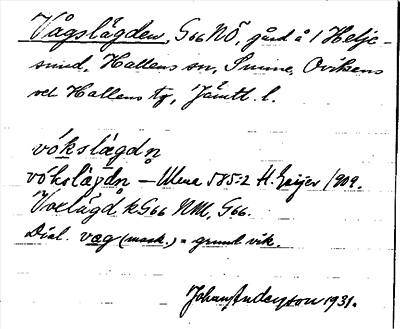 Vågslägden, G66NÖ, gård å 1 Helje-
sund, Hallens sn, Sunne, Ovikens
och Hallens tg, Jämtl. l.
vókslægdn
vókslägdn̥ — Uena 585:2 H. Geijer 1909.
Voelägd k G66 NM, G66.
Dial. væg (mask.) = grund vik.
Johan Anderson 1931.